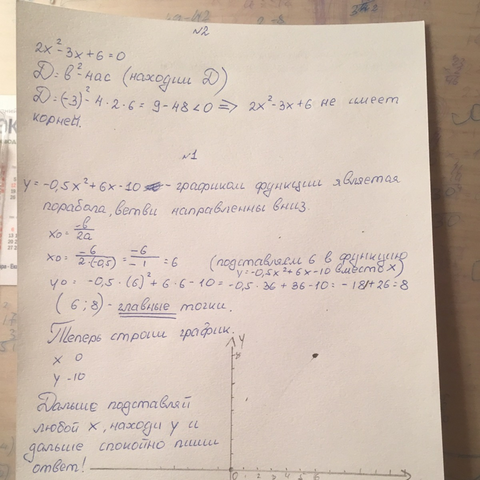 №2
2x²-3x+6=0
D=в²-4ас (находим D)
D=(-3)²-4·2·6=9-48<0 => 2x²-3x+6 не имеет
корней.
№1
y=-0,5x²+6x-10 - графиком функции является
парабола, ветви направленны вниз.
x0=-в/2а
x0=-6/2·(-0,5)=-6/-1=6 (подставляем 6 в функцию
y=-0,5x²+6x-10 вместо x)
y0=-0,5·(6)²+6·6-10=-0,5·36+36-10=-18+26=8
(6;8) - главные точки.
Теперь строим график.
x 0
y -10
y
Дальше подставляй
любой x, находи y и
дальше спокойно пиши
ответ!
0 2 4 6 8 10